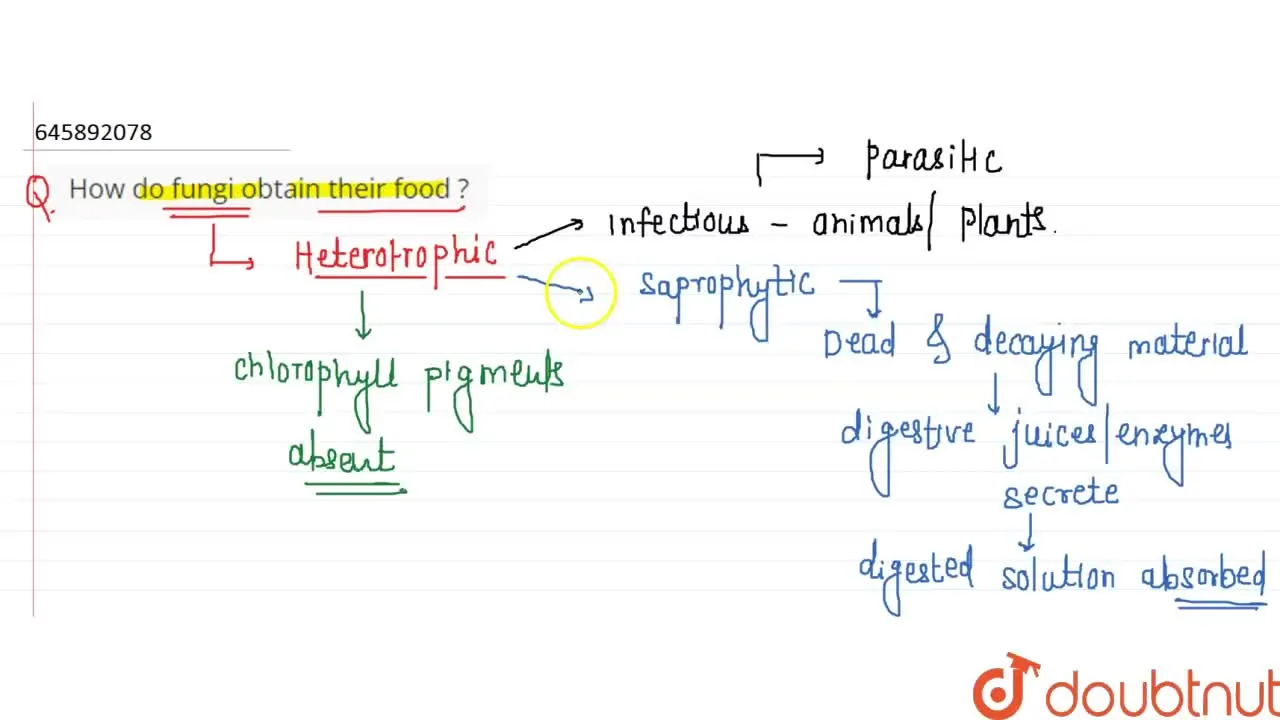 645892078
Q. How do fungi obtain their food ?
Heterotrophic
chlorophyll pigments
absent
Parasitic
infectious - animals/ Plants.
Saprophytic
Dead & decaying material
digestive juices/enzymes
secrete
digested solution absorbed
doubtnut